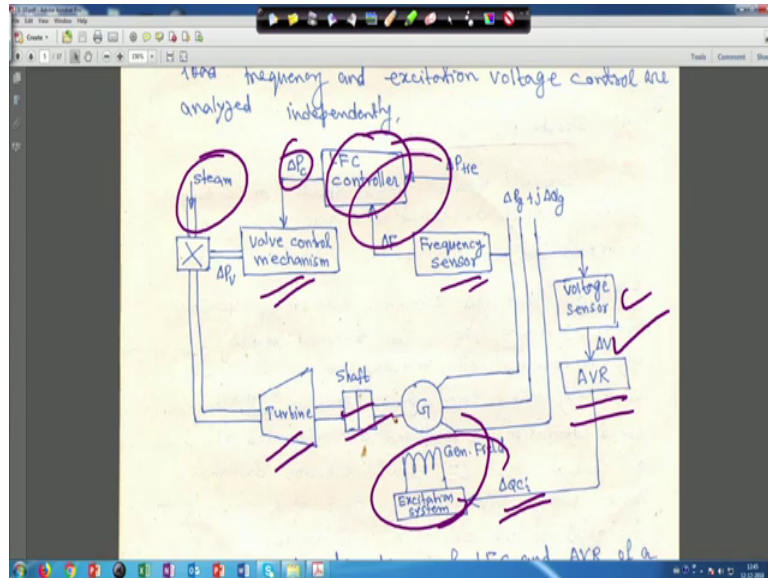 File Edit View Window Help
Create
5 / 37
150%
Tools Comment Share
load frequency and excitation voltage control are
analyzed independently.
steam
ΔPc
LFC
controller
ΔPtie
ΔPg + jΔQg
valve control
mechanism
ΔPv
ΔF
Frequency
sensor
voltage
sensor
ΔV
AVR
Shaft
Turbine
G
Gen. Field
Excitation
system
ΔQci
of LFC and AVR of a
12:45
12-12-2018